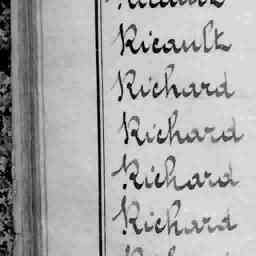 Ricault
Richard
Richard
Richard
Richard